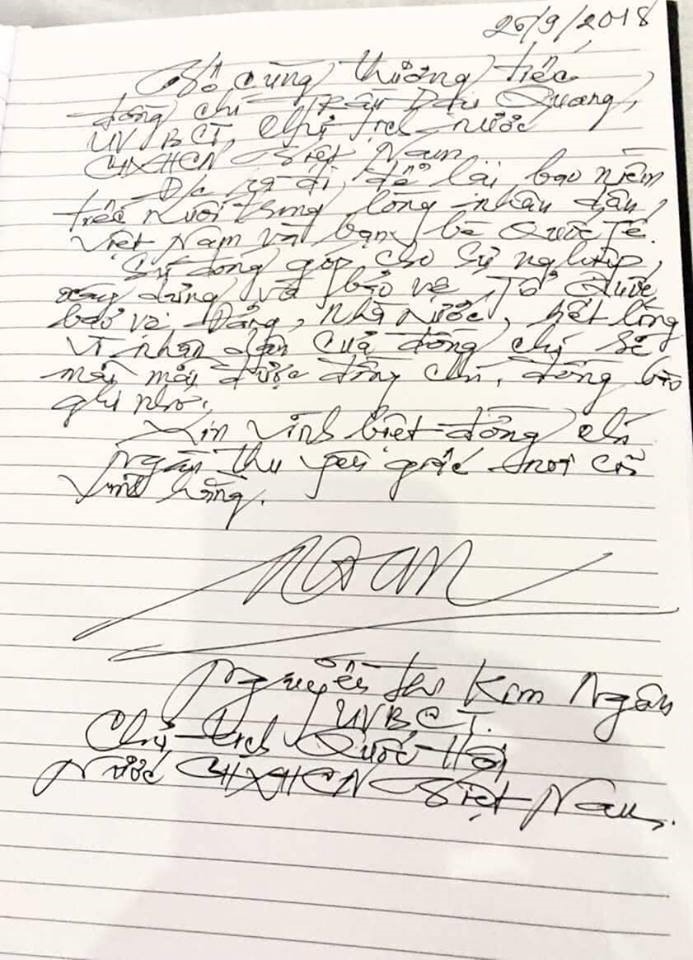 26/9/2018
Vô cùng thương tiếc
đồng chí Trần Đại Quang,
UVBCT, Chủ tịch nước
CHXHCN Việt Nam
Đ/c ra đi, để lại bao niềm
tiếc nuối trong lòng nhân dân,
Việt Nam và bạn bè Quốc Tế.
Sự đóng góp cho sự nghiệp,
xây dựng và bảo vệ Tổ Quốc
bảo vệ Đảng, Nhà nước, hết lòng
vì nhân dân của đồng chí sẽ
mãi mãi được đồng chí, đồng bào
ghi nhớ.
Xin vĩnh biệt đồng chí
ngàn thu yên giấc nơi cõi
vĩnh hằng.
Ngân
Nguyễn Thị Kim Ngân
UVBCT.
Chủ tịch Quốc Hội
Nước CHXHCN Việt Nam.